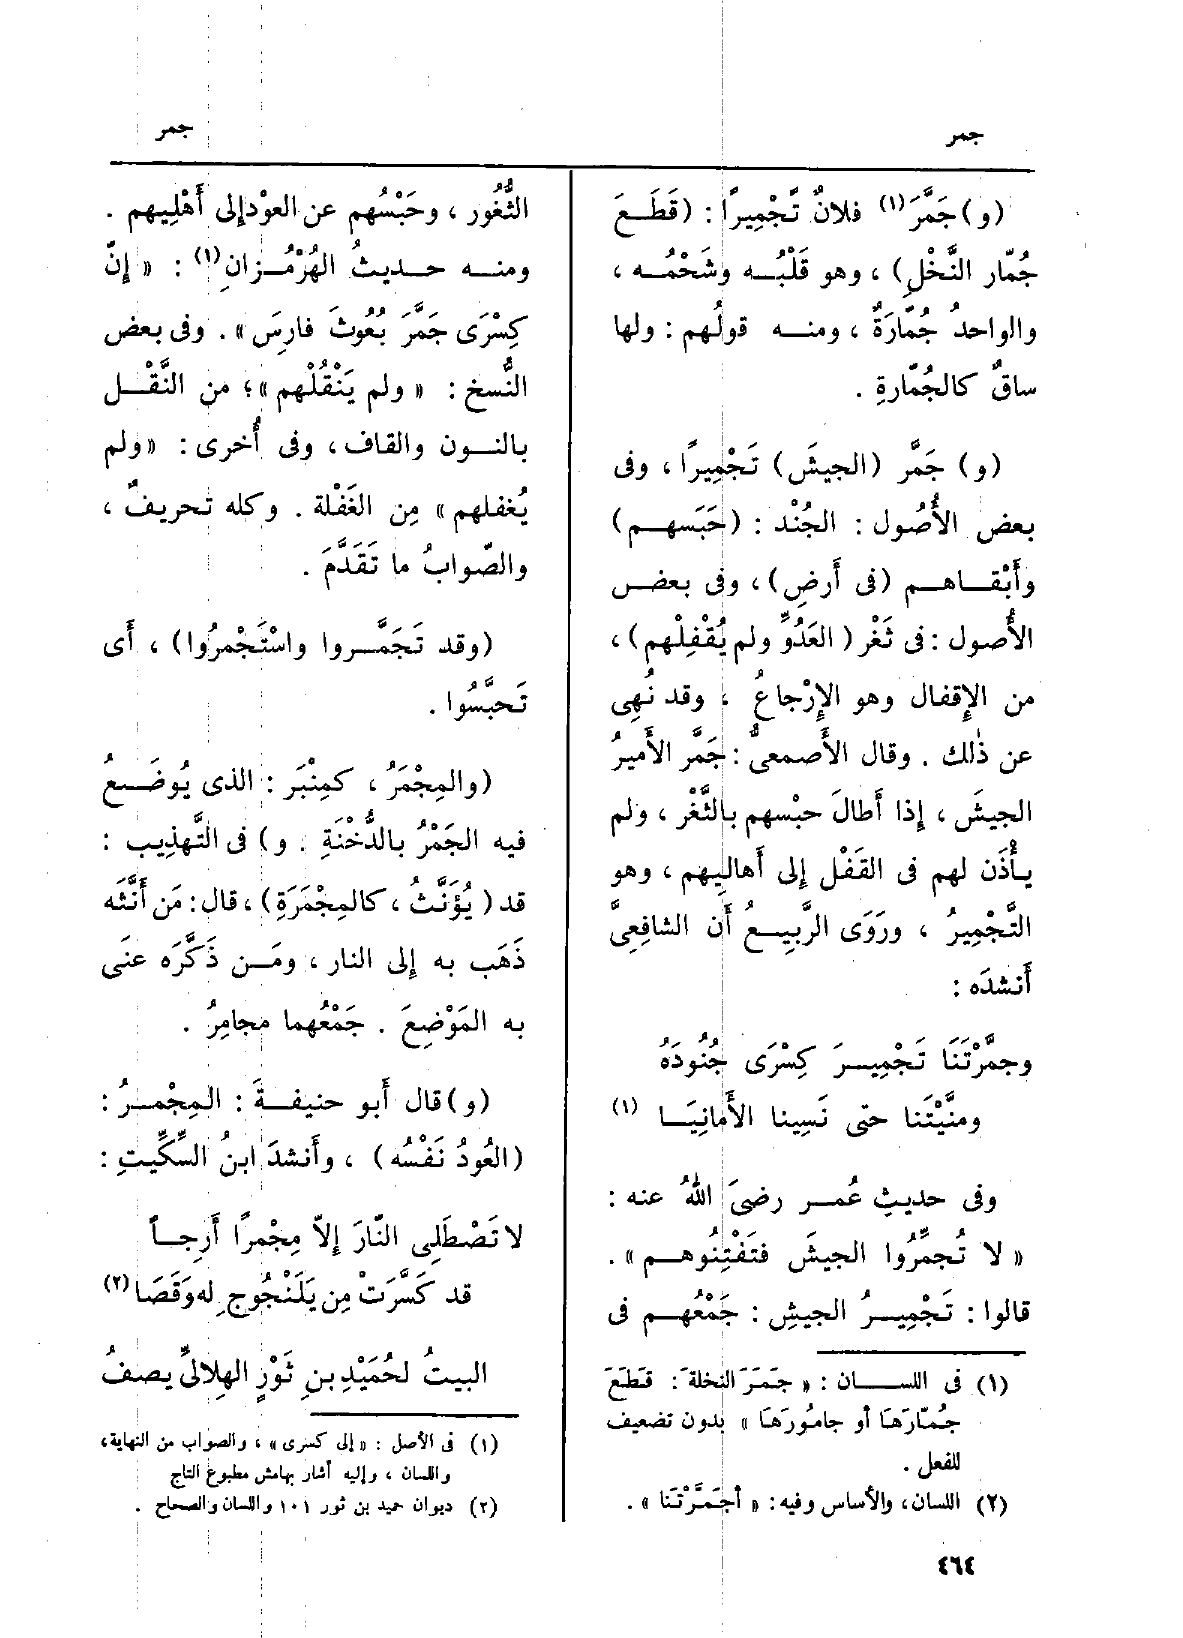 جمر
جمر
(و) جَمَّرَ (١) فلانٌ تَجْمِيرًا : (قَطَعَ
جُمّار النَّخْلِ) ، وهو قَلْبُه وشَحْمُه ،
والواحدُ جُمّارَةٌ ، ومنه قولُهم : ولها
ساقٌ كالجُمّارةِ .
(و) جَمَّر (الجيشَ) تَجْمِيرًا ، وفى
بعض الأُصُول : الجُنْد : (حَبَسهم)
وأَبْقاهم (فى أَرضِ) ، وفى بعض
الأُصول : فى ثَغْر (العَدُوِّ ولم يُقْفِلْهم) ،
من الإِقفال وهو الإِرْجاعُ ، وقد نُهِى
عن ذٰلك . وقال الأَصمعىُّ : جَمَّر الأَميرُ
الجيشَ ، إِذا أَطالَ حبْسهم بالثَّغْر ، ولم
يأْذَن لهم فى القَفْل إِلى أَهالِيهم ، وهو
التَّجْمِيرُ ، ورَوَى الرَّبِيعُ أَن الشافِعِىَّ
أَنشدَه :
وجمَّرْتَنَا تَجْمِيرَ كِسْرَى جُنُودَهُ
ومنَّيْتَنا حتى نَسِينا الأَمانِيَا (١)
وفى حديثِ عُمر رضىَ اللهُ عنه :
« لا تُجمِّرُوا الجيشَ فتَفْتِنُوهم » .
قالوا : تَجْمِيرُ الجيشِ : جَمْعُهم فى
(١) فى اللسان : « جَمَرَ النخلةَ : قَطَعَ
جُمّارَهَا أو جامُورَهَا » بدون تضعيف
للفعل .
(٢) اللسان، والأساس وفيه : « أجمَرْتَنا » .
الثُّغُور ، وحَبْسُهم عن العوْد إِلى أَهْلِيهم .
ومنه حديثُ الهُرْمُزانِ (١) : « إِنّ
كِسْرَى جَمَّرَ بُعُوثَ فارِسَ » . وفى بعض
النُّسخ : « ولم يَنْقُلْهم » ؛ من النَّقْل
بالنون والقاف ، وفى أُخرى : « ولم
يُغفلهم » مِن الغَفْلة . وكله تحريفٌ ،
والصّوابُ ما تَقَدَّمَ .
(وقد تَجَمَّروا واسْتَجْمرُوا) ، أَى
تَحبَّسُوا .
(والمِجْمَرُ ، كمِنْبَر : الذى يُوضَعُ
فيه الجَمْرُ بالدُّخْنَةِ . و) فى التَّهذِيب :
قد (يُؤَنَّثُ ، كالمِجْمَرَةِ) ، قال : مَن أَنَّثَه
ذَهَب به إِلى النار ، ومَن ذَكَّرَه عنَى
به المَوْضِعَ . جَمْعُهما مجامِرُ .
(و) قال أَبو حنيفةَ : المِجْمرُ :
(العُودُ نَفْسُه) ، وأَنشدَ ابنُ السِّكِّيتِ :
لا تَصْطَلِى النّارَ إِلاّ مِجْمرًا أَرِجاً
قد كَسَّرَتْ مِن يَلَنْجُوجٍ له وَقَصَا (٢)
البيتُ لحُمَيْدِ بنِ ثَوْرٍ الهِلالىِّ يصفُ
(١) فى الأصل : « إلى كسرى » ، والصواب من النهاية،
واللسان ، وإليه أشار بهامش مطبوع التاج
(٢) ديوان حميد بن ثور ١٠١ واللسان والصحاح .
٤٦٤